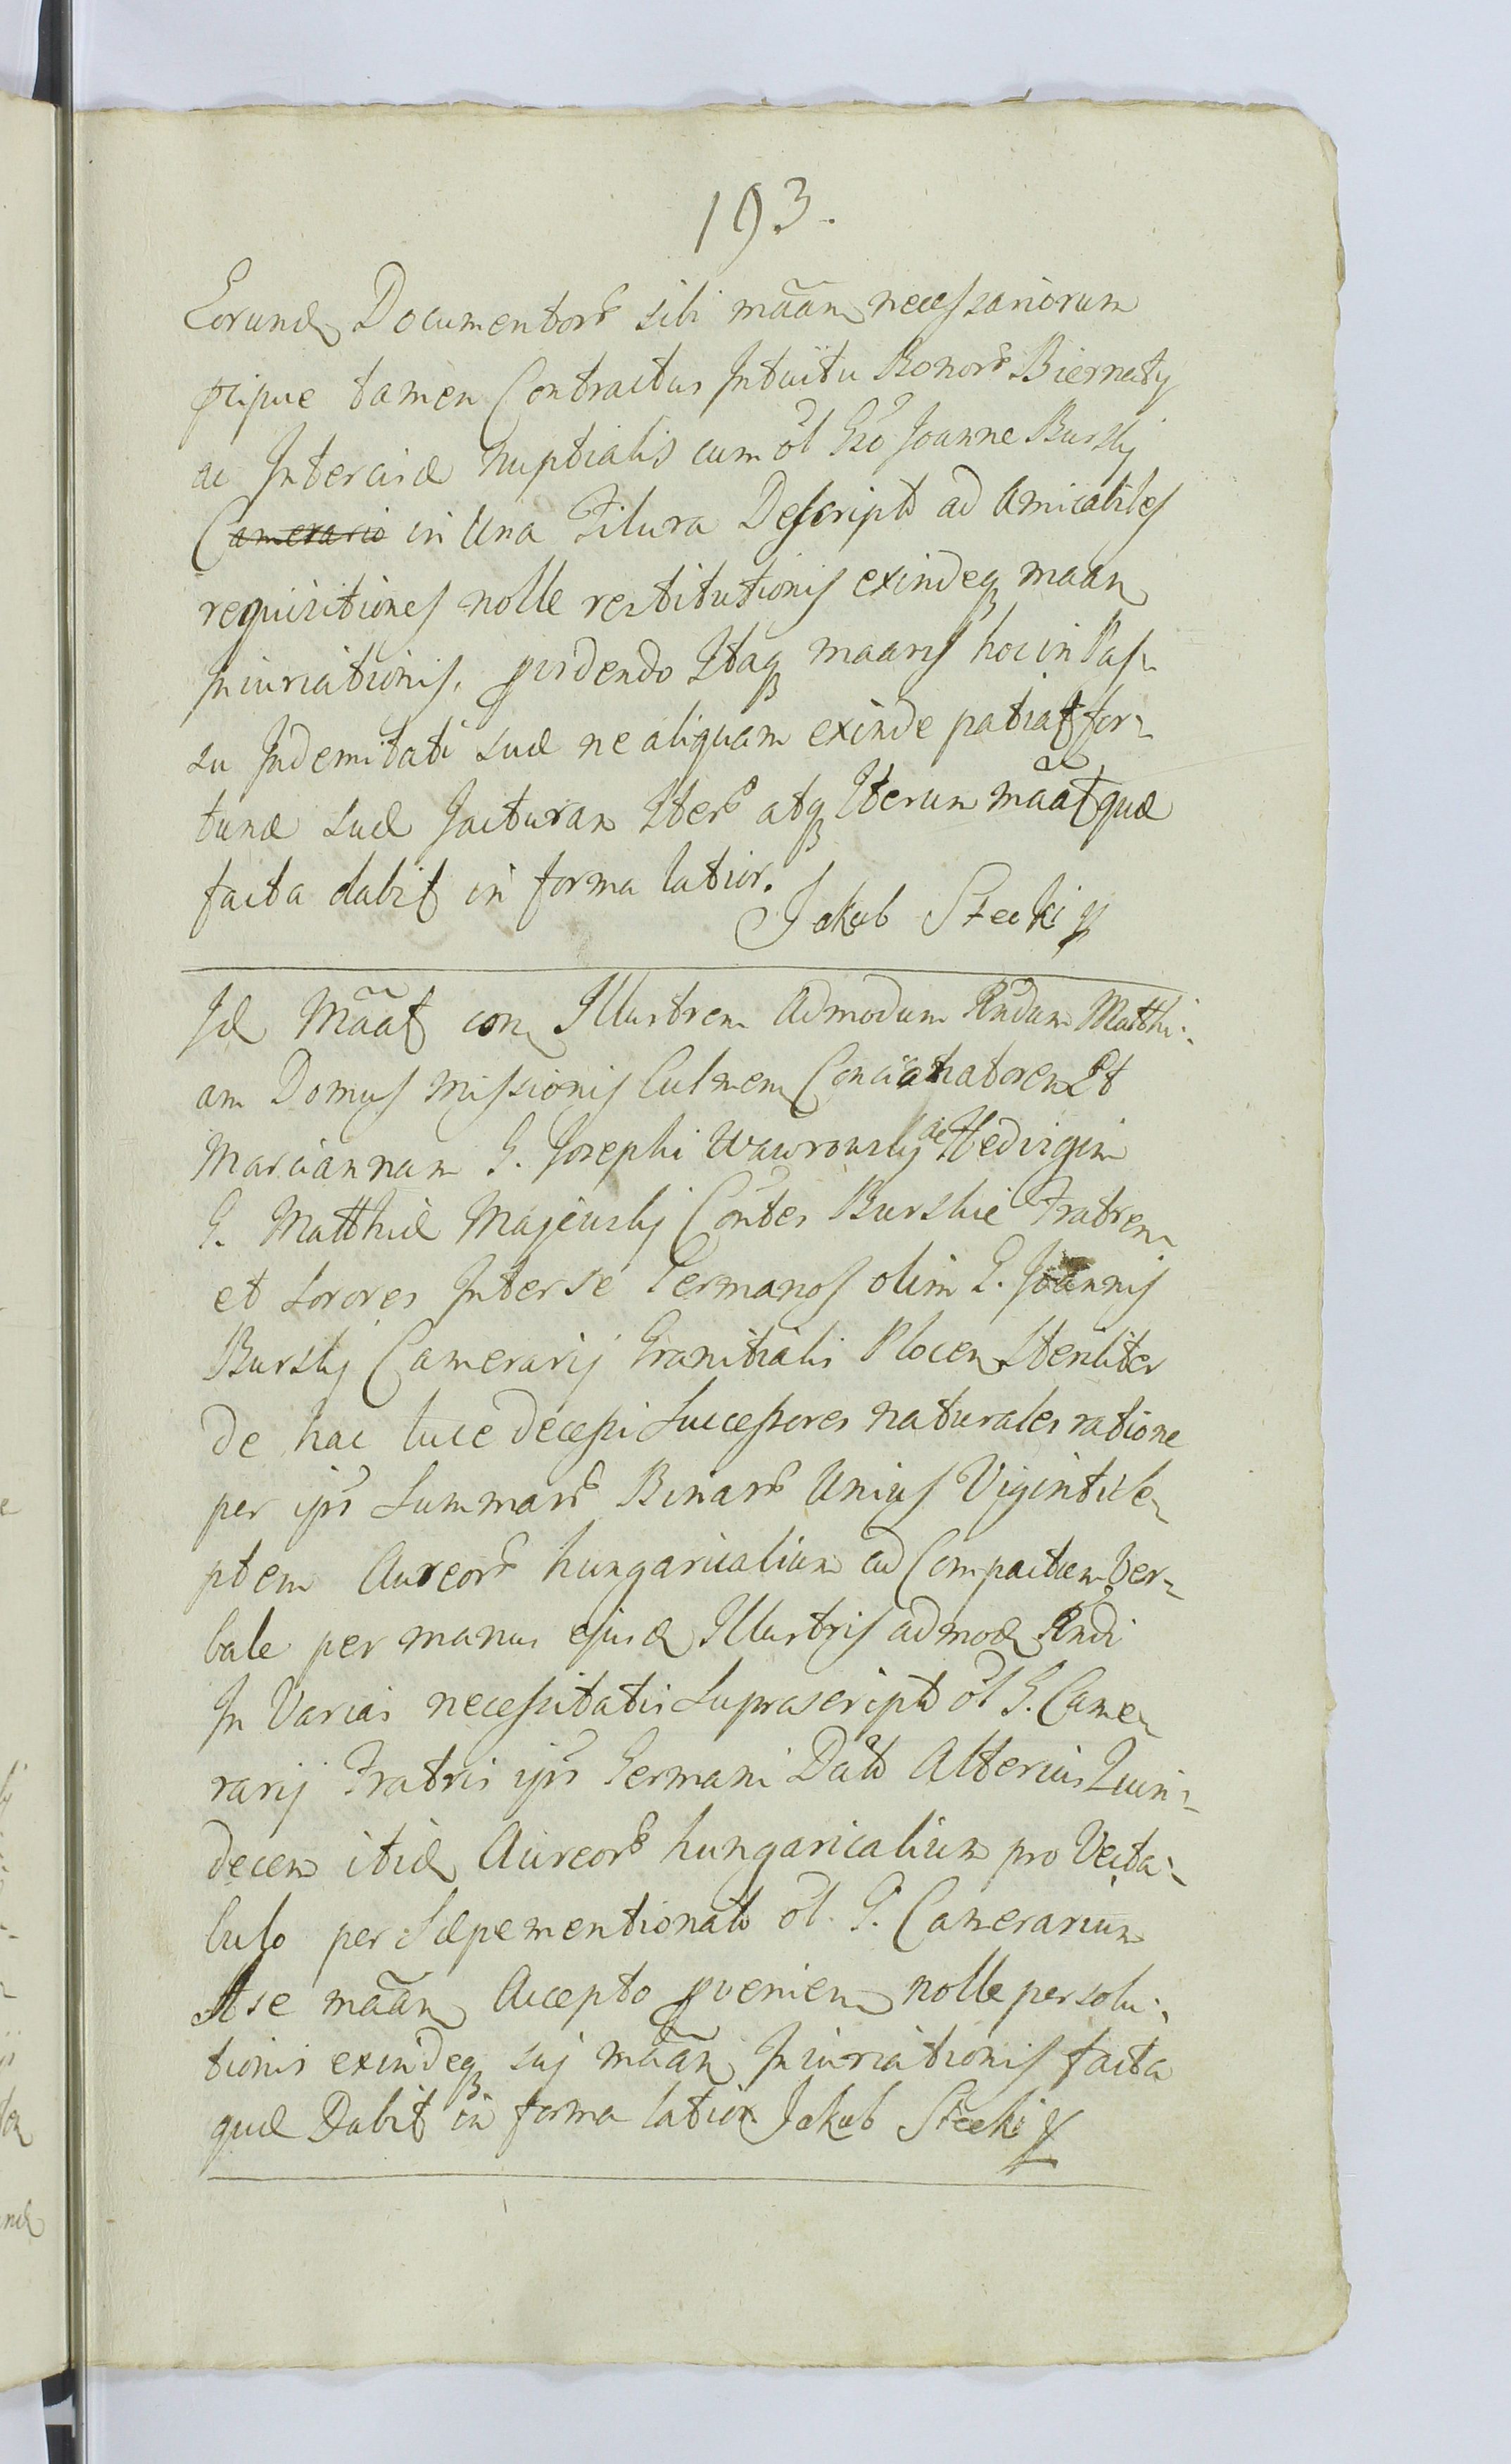 193.
Eorund Documentorъ sibi mãan necessariorum
pcipue tamen Contractus Intuitu Bonorъ Biernaty
ac Intercisæ Nuptialis cum ol Gso Joanne Burskj
Camerario in Una Litura Descript ad Amicabiles
requisitiones nolle restitutionis exindeq maan
Iniuriationis. pvidendo Itaq maans hoc in Pas-
su Indemitati suæ ne aliquam exinde patiat for-
tunæ suæ Jacturam Iterъ atq Iterum mãat quæ
facta dabit in forma latior.
Jakub Stecki
Id Mãat con Illustrem Admodum Rndum Matthi-
am Domus Missionis Culmen Concionatorem Et
Mariannam G. Josephi Wawrowskj ac Hedvigim
G. Matthiæ Majewskj Contes Burskie Fratrem
et Sorores Inter se Germanos olim G. Joannis
Burskj Camerarij Granitialis Plocen Steriliter
de hac luce decessi Successores naturales ratione
per ips Summarъ Binarъ Unius Viginti se-
ptem Aureorъ hungaricalium ad Compactum Ver-
bale per manus ejusd Illustris admod Rndi
In Varias necessitates Suprascript ol G. Came-
rarij Fratris ips Germani Dat Alterius Quin-
decem itid Aureorъ hungaricalium pro Vecta-
bulo per Sæpementionat ol. G. Camerarium
A se mãan Accepto pvenien nolle persolu-
tionis exindeq suj mãan Iniuriationis facta
quæ Dabit in forma latior Jakub Stecki